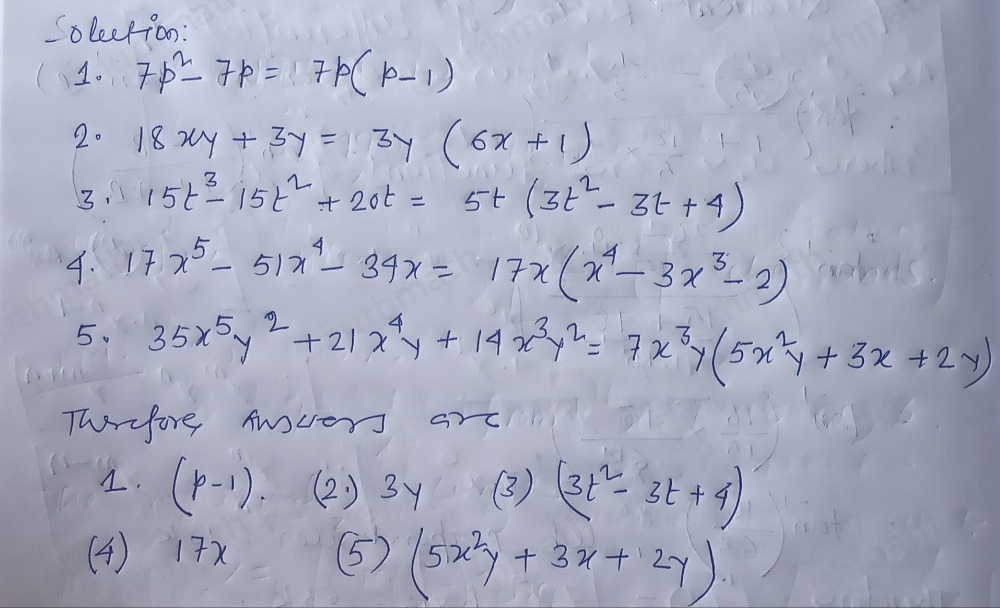 Solution:
1. 7p² - 7p = 7p(p-1)
2. 18xy + 3y = 3y (6x + 1)
3. 15t³ - 15t² + 20t = 5t (3t² - 3t + 4)
4. 17x⁵ - 51x⁴ - 34x = 17x(x⁴ - 3x³ - 2)
5. 35x⁵y² + 21x⁴y + 14x³y² = 7x³y(5x²y + 3x + 2y)
Therefore, Answers are
1. (p-1). (2.) 3y (3) (3t² - 3t + 4)
(4) 17x (5) (5x²y + 3x + 2y).